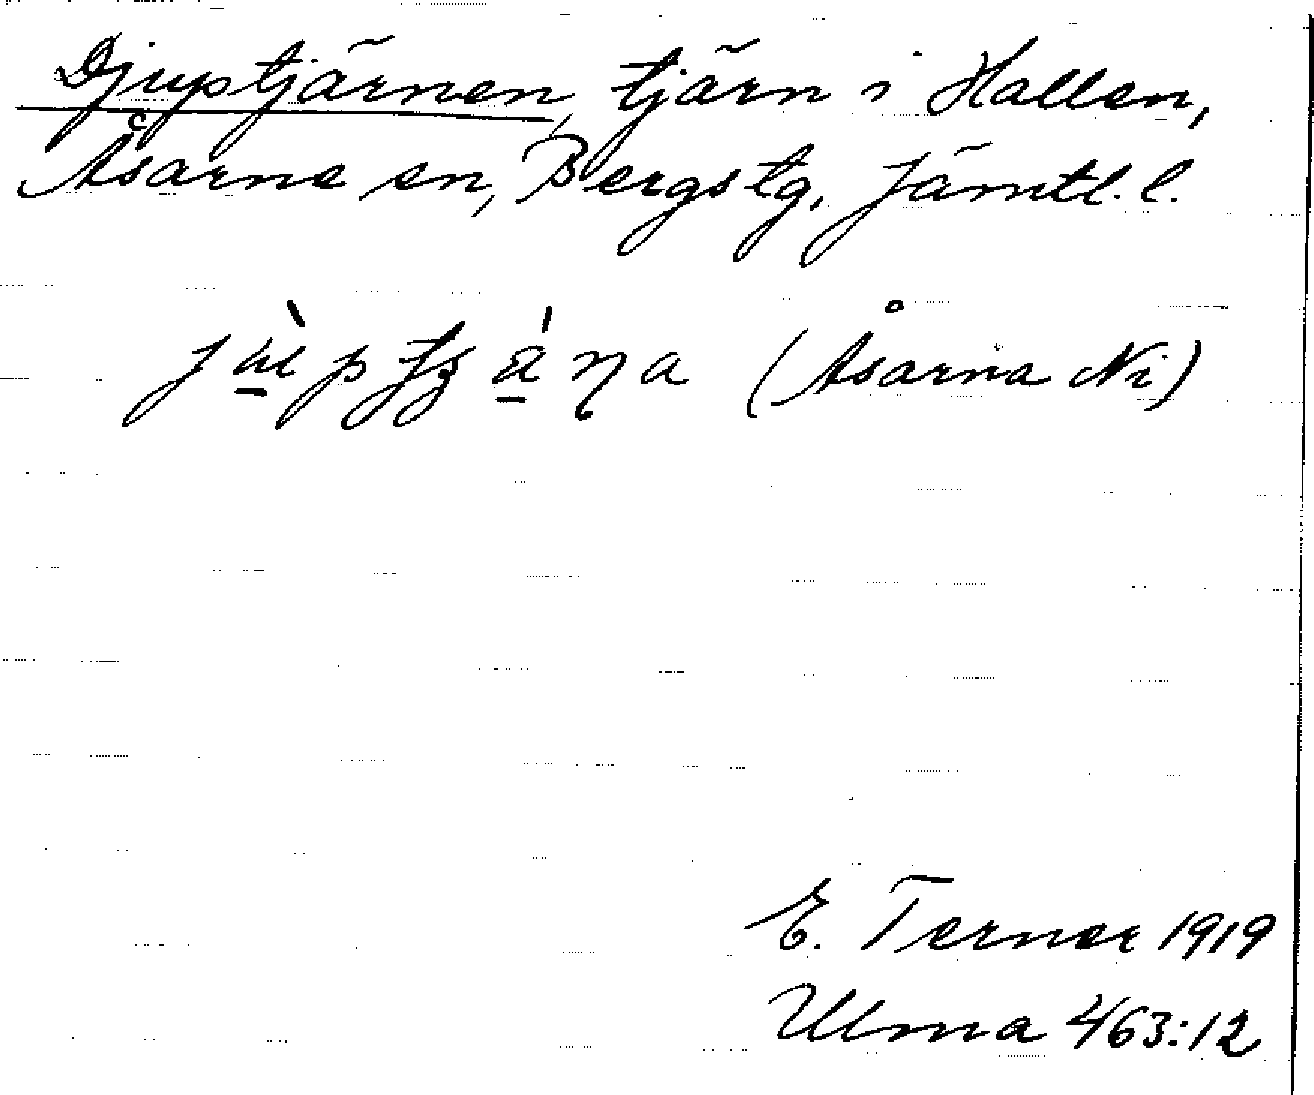 Djuptjärnen, tjärn i Hallen,
Åsarne sn, Bergs tg, Jämtl. l.
(Åsarna Ni)
E. Terner 1919
Ulma 463:12